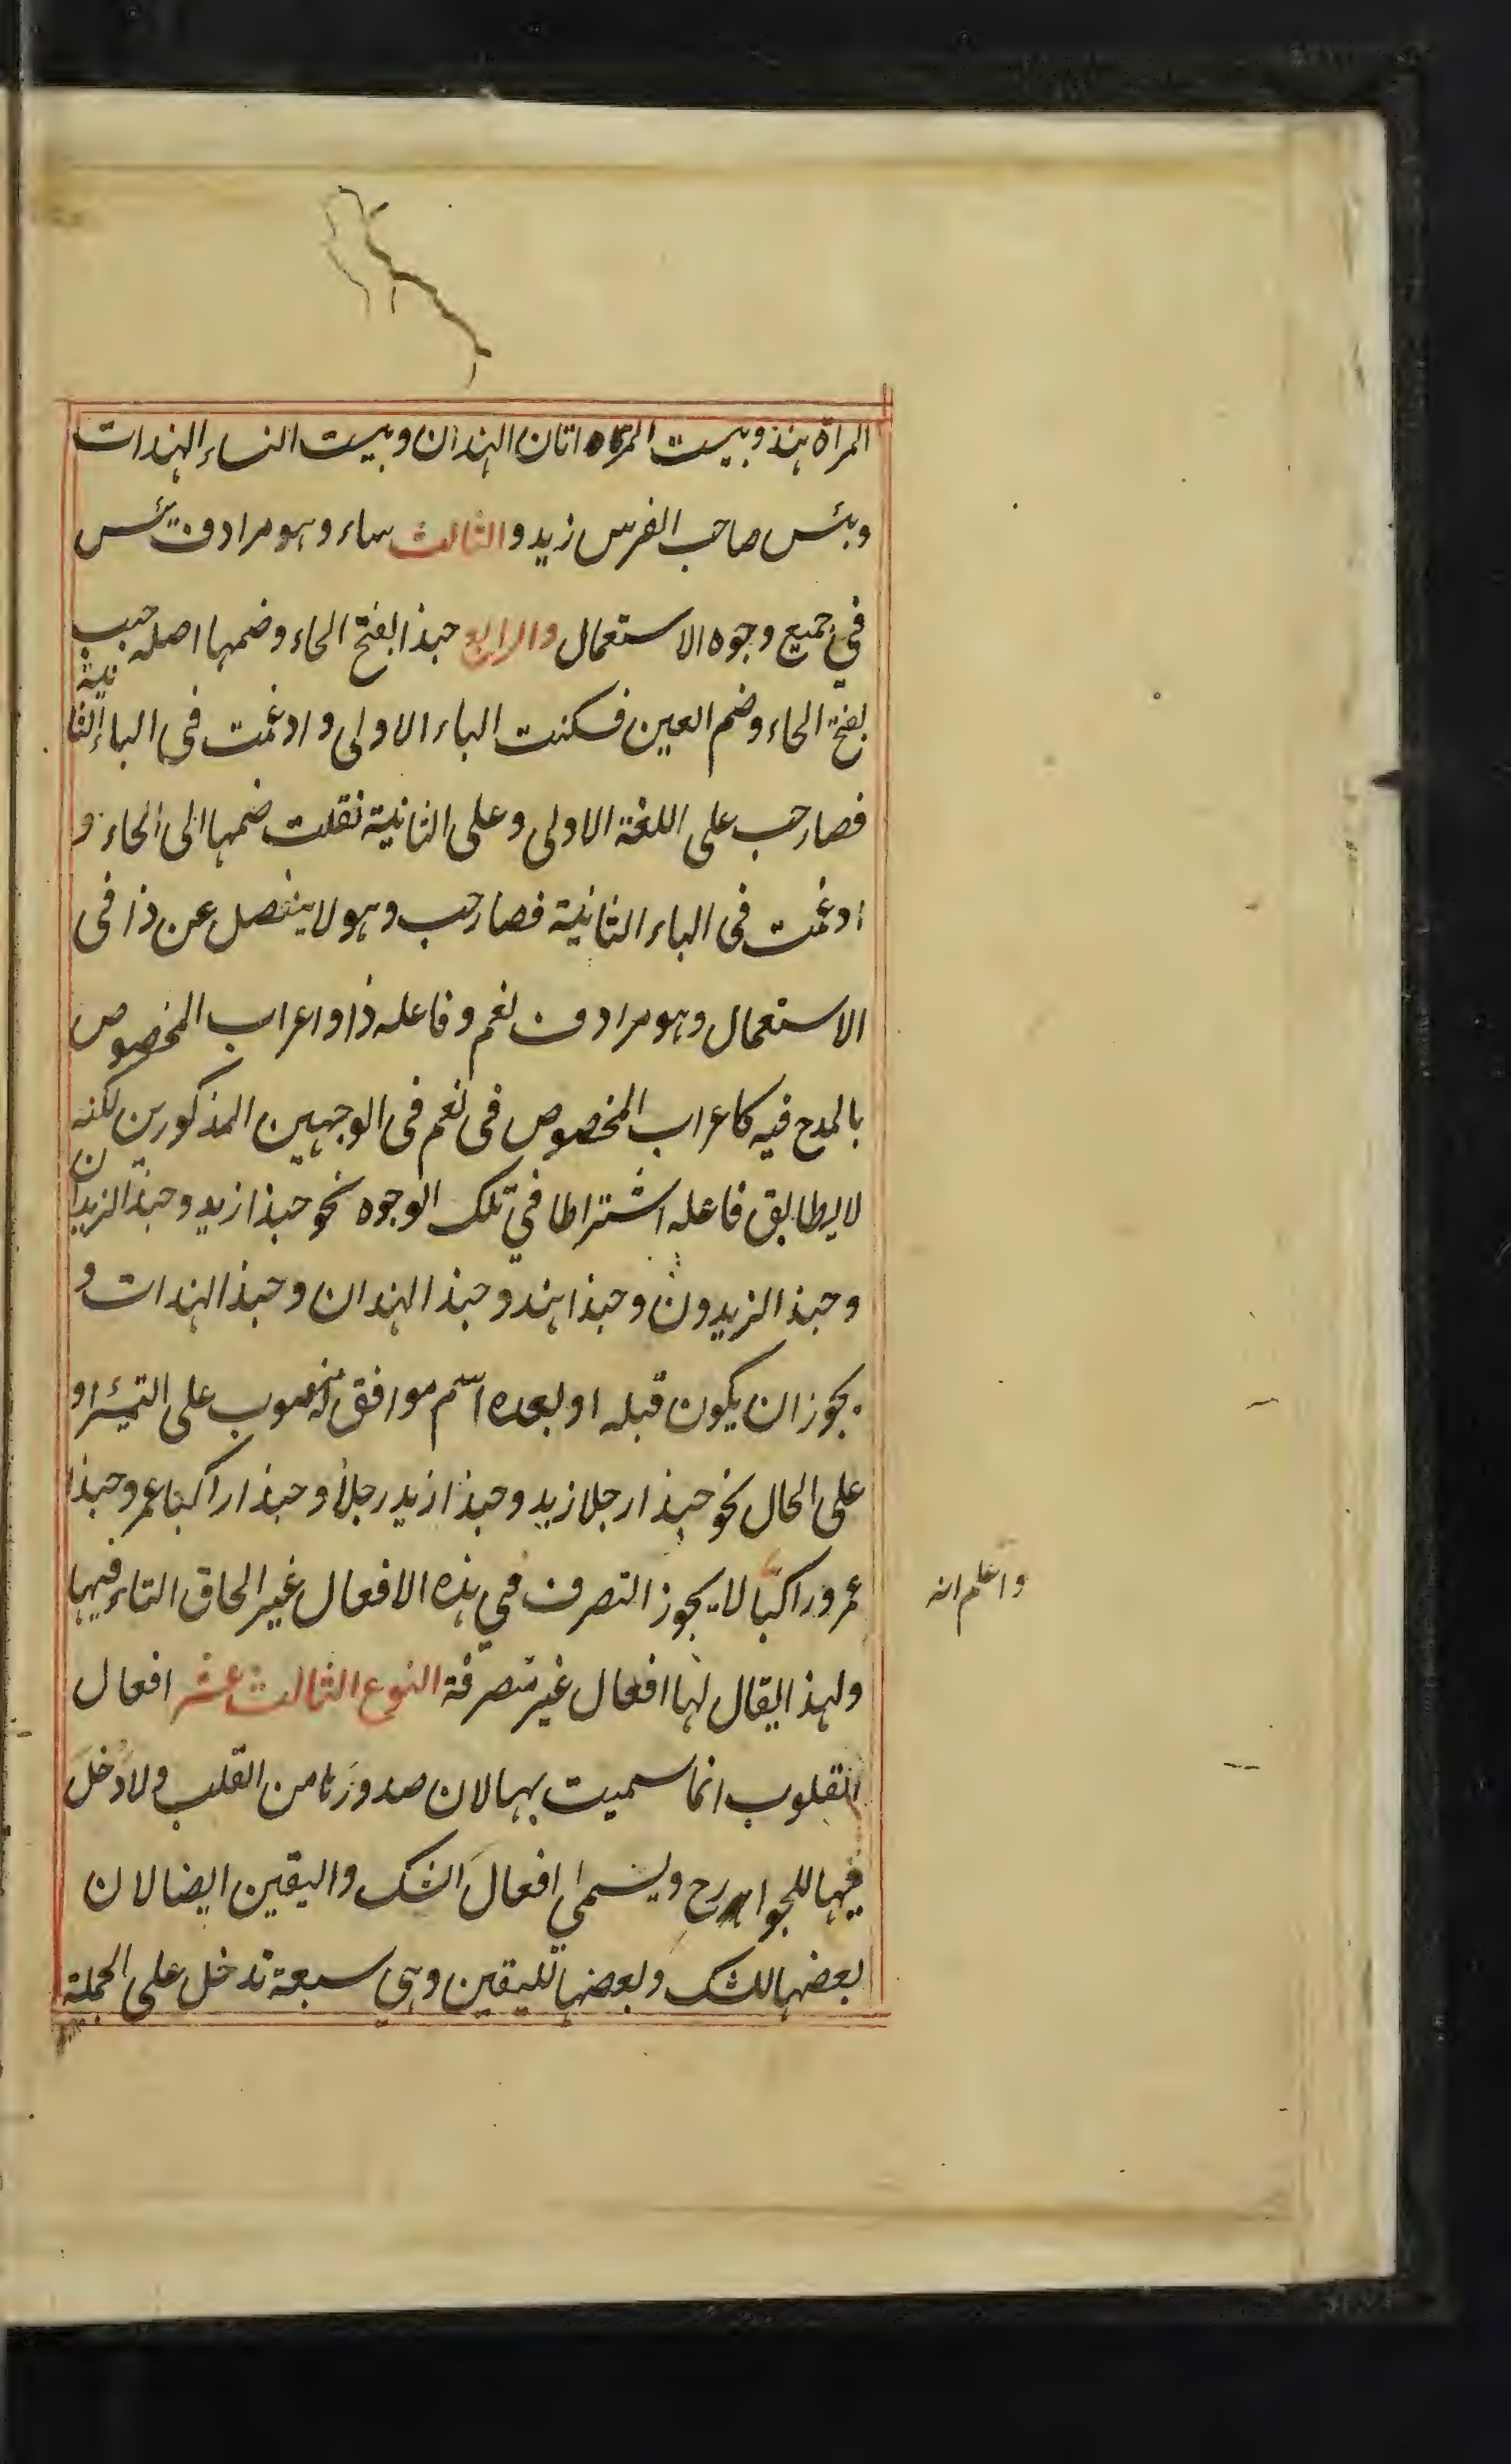 المراة هند وبيست المراتان الهندان وبيست النساء الهندات
وبئس صاحب الفرس زيد والثالث ساء وهو مرادف بئس
في جميع وجوه الاستعمال والرابع حبذا بفتح الحاء وضمها اصله حبب
بفتح الحاء وضم العين فسكنت الباء الاولى وادغمت فى الباء الثانية
فصار حب على اللغة الاولى وعلى الثانية نقلت ضمها الى الحاء و
ادغمت فى الباء الثانية فصار حب وهو لا ينفصل عن ذا فى
الاستعمال وهو مرادف نعم وفاعله ذا واعراب المخصوص
بالمدح فيه كاعراب المخصوص فى نعم فى الوجهين المذكورين لكنه
لا يطابق فاعله اشتراطا في تلك الوجوه نحو حبذا زيد وحبذا الزيدان
وحبذ الزيدون وحبذا هند وحبذ الهندان وحبذ الهندات و
يجوز ان يكون قبله او بعده اسم موافق له منصوب على التمئيز او
على الحال نحو حبذا رجلا زيد وحبذا زيد رجلاً وحبذا راكبا عمر وحبذا
عمرو راكبًا لا يجوز التصرف في هذه الافعال غير الحاق التاء فيها
واعلم انه
ولهذا يقال لها افعال غير متصرفة النوع الثالث عشر افعال
القلوب انما سميت بها لان صدورها من القلب ولا دخل
فيها للجوارح ويسمى افعال الشك واليقين ايضا لان
بعضها للشك وبعضها لليقين وهي سبعة تدخل على الجملة